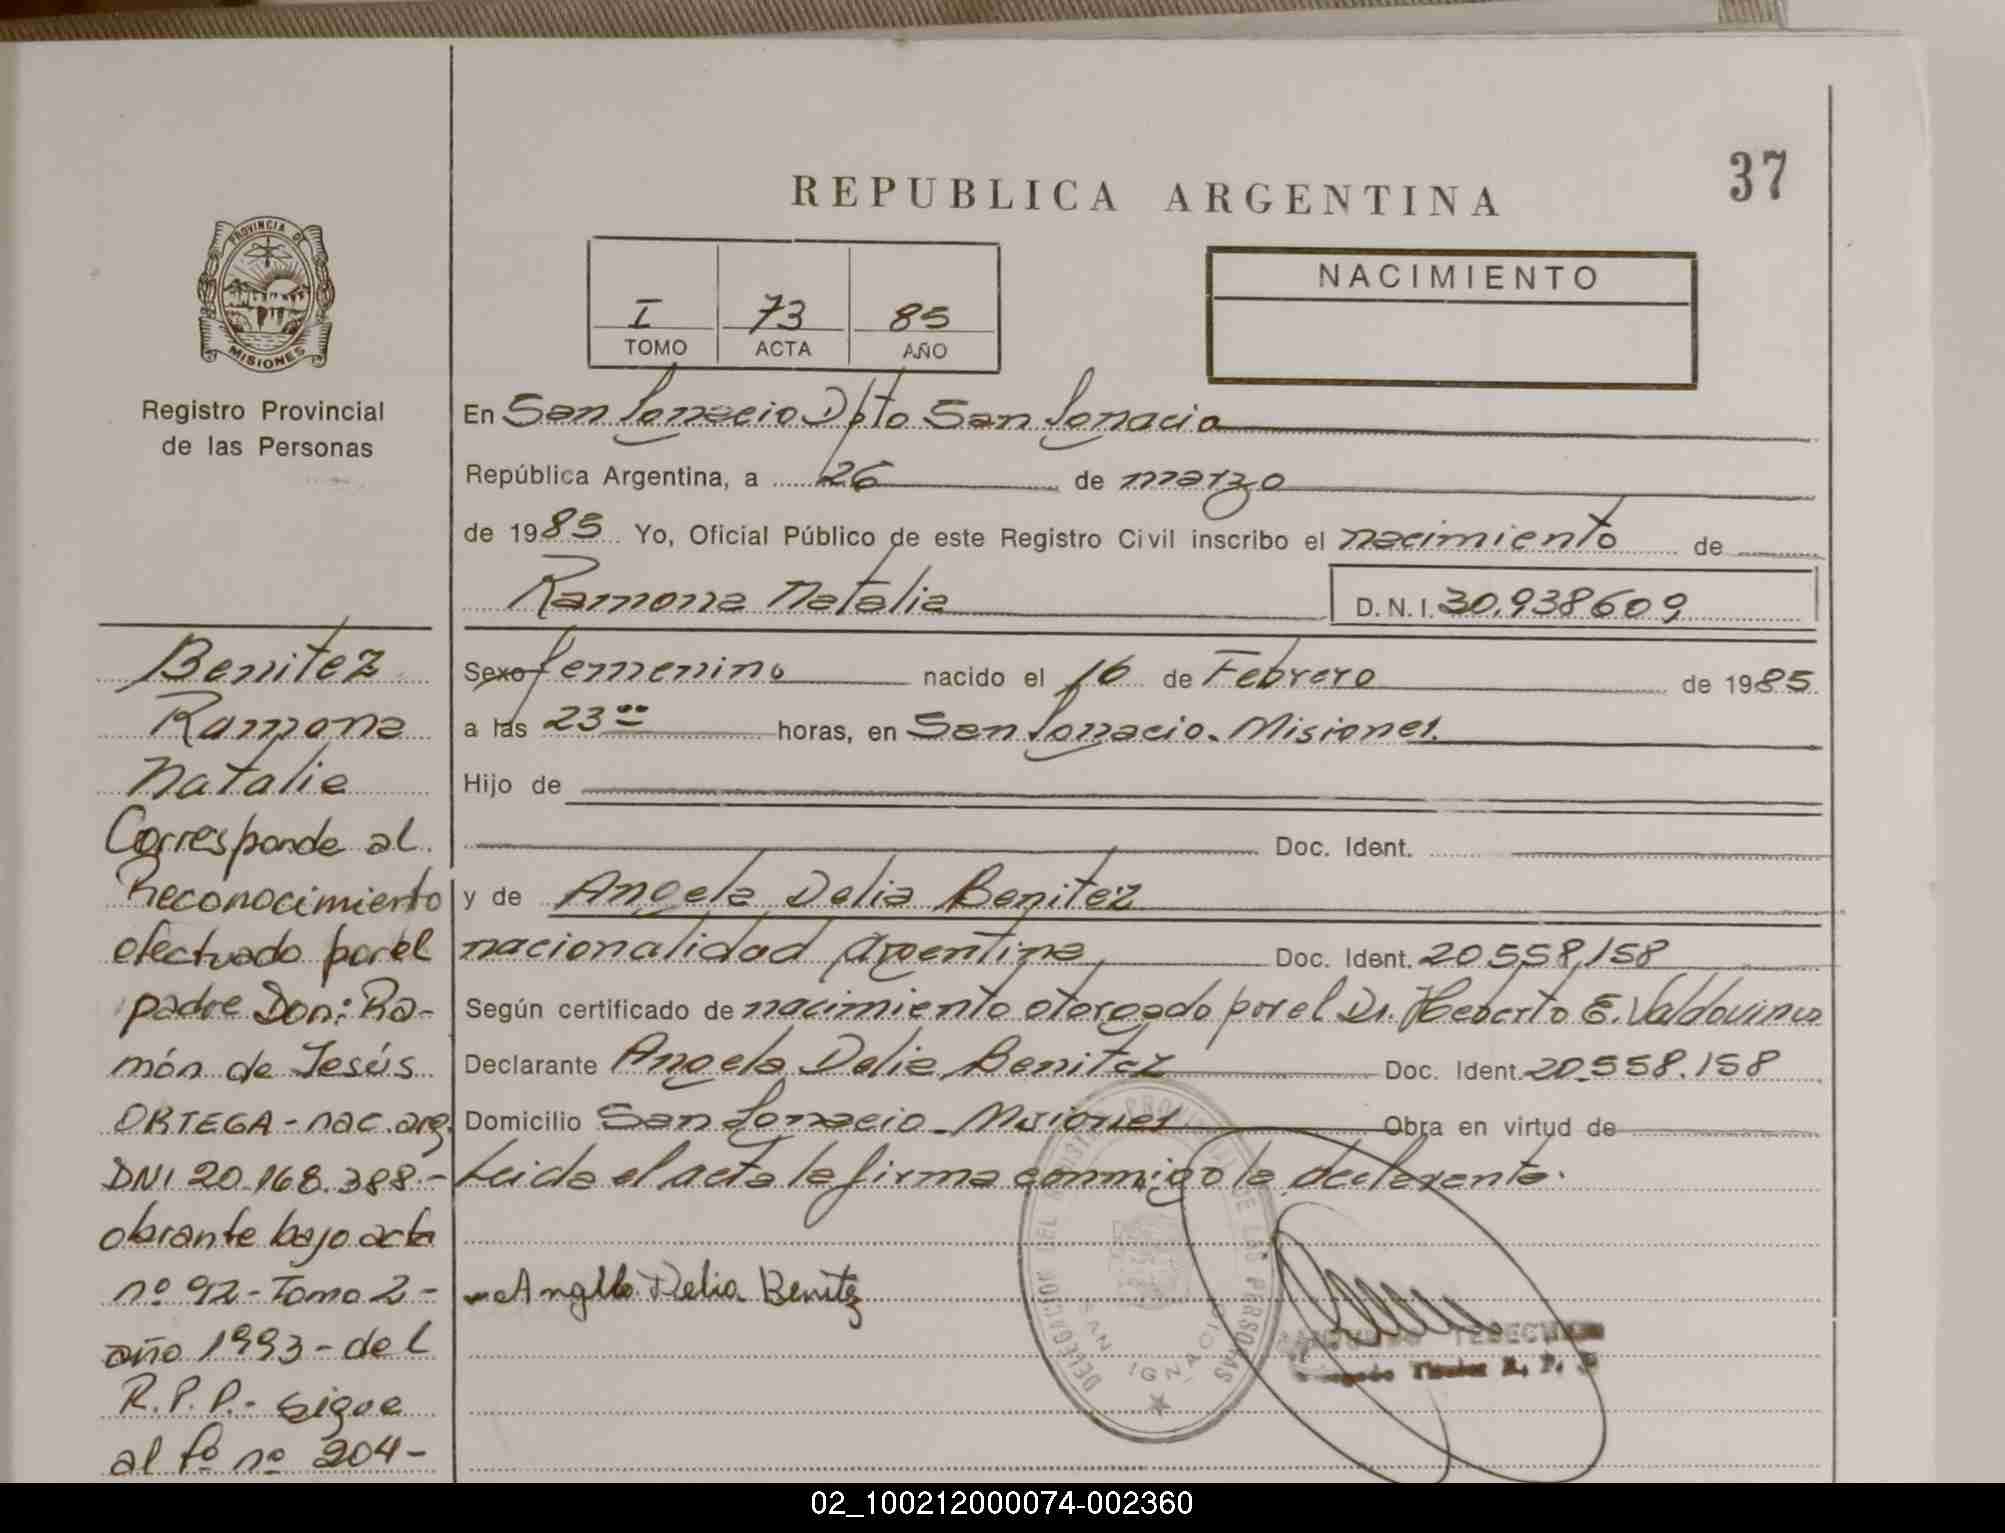 37
REPUBLICA ARGENTINA
PROVINCIA DE
MISIONES
Registro Provincial
de las Personas
I 73 85
TOMO ACTA AÑO
NACIMIENTO
En San Ignacio Dpto San Ignacio
República Argentina, a 26 de marzo
de 1985 Yo, Oficial Público de este Registro Civil inscribo el nacimiento de
Ramona Natalia D.N.I. 30.938609
Sexo femenino nacido el 16 de Febrero de 1985
a las 23 00 horas, en San Ignacio. Misiones.
Hijo de
Doc. Ident.
y de Angela Delia Benitez
nacionalidad argentina Doc. Ident. 20.558,158
Según certificado de nacimiento otorgado por el Dr. Heberto E. Valdovinos
Declarante Angela Delia Benitez Doc. Ident. 20.558.158
Domicilio San Ignacio - Misiones Obra en virtud de
Leida el acta la firma conmigo la declarante.
Angela Delia Benitez
DELEGACION DEL REGISTRO PROVINCIAL DE LAS PERSONAS
SAN IGNACIO
Benitez
Ramona
Natalia
Corresponde al
Reconocimiento
efectuado por el
padre Don: Ra-
món de Jesús
ORTEGA - nac. arg.
DNI 20.168.388.-
obrante bajo acta
nº 92 - Tomo 2 -
año 1993 - del
R.P.P.- sigue
al fº nº 204 -
02_100212000074-002360